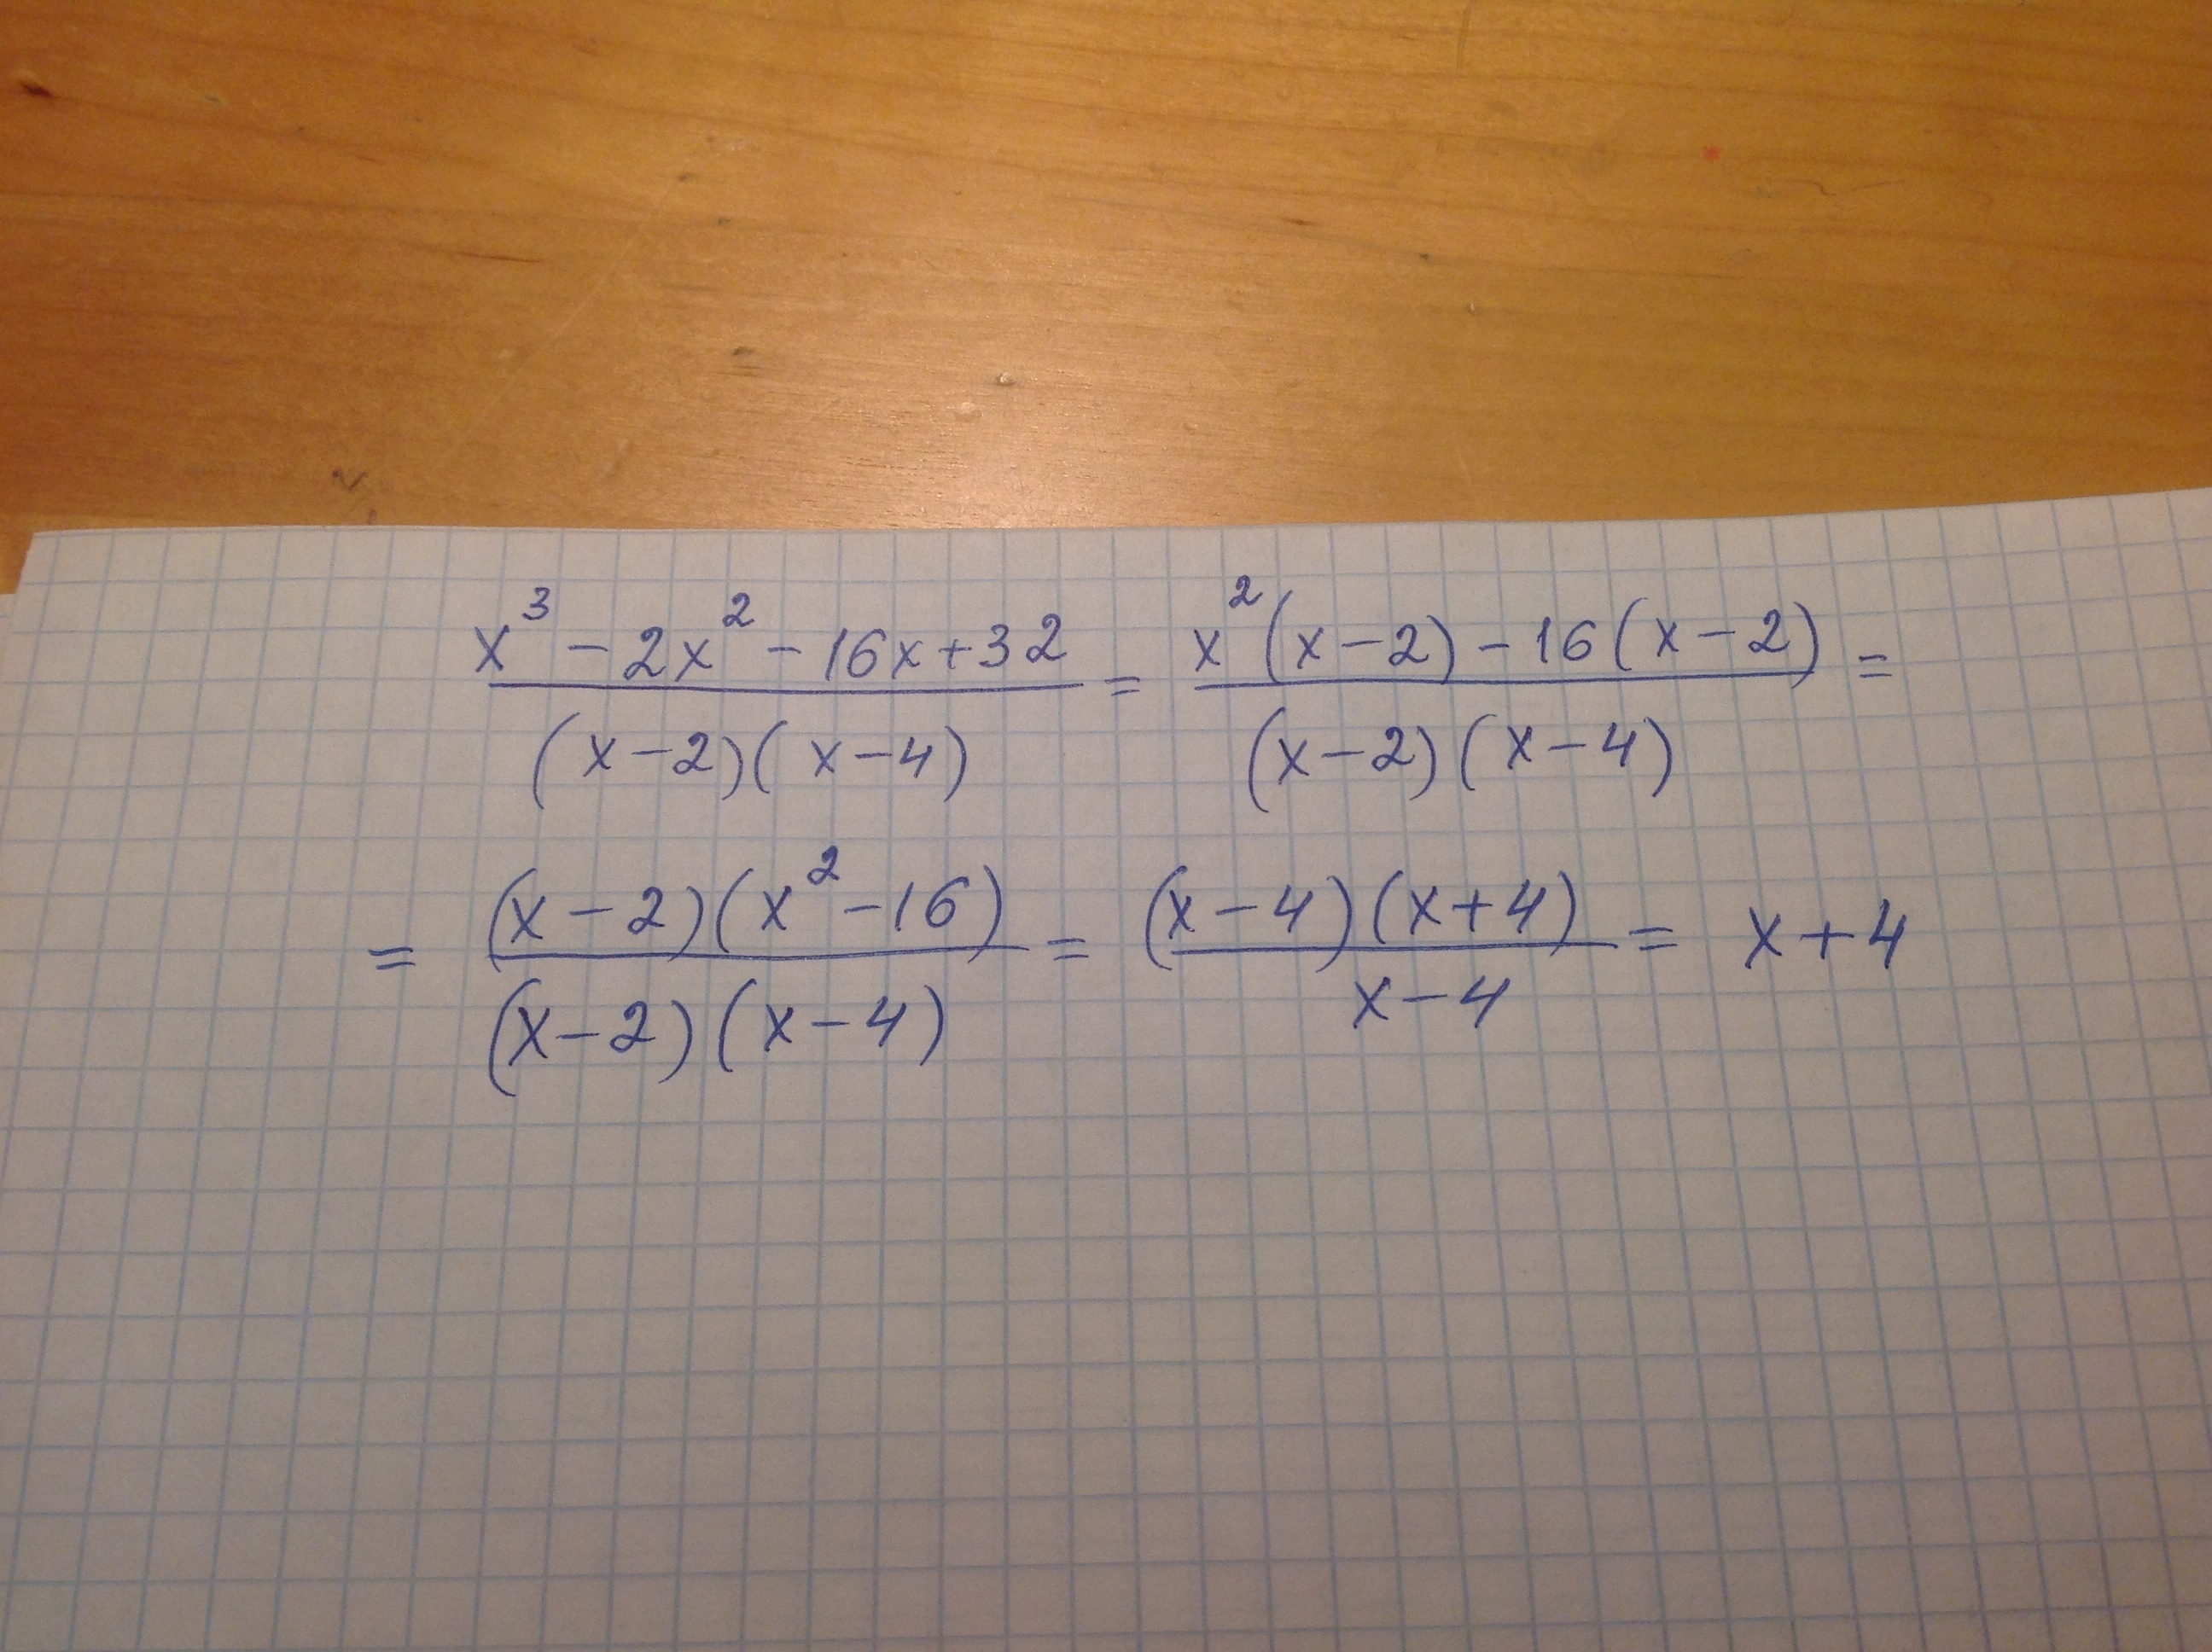 (x³ - 2x² - 16x + 32) / ((x - 2)(x - 4)) = (x²(x - 2) - 16(x - 2)) / ((x - 2)(x - 4)) =
= ((x - 2)(x² - 16)) / ((x - 2)(x - 4)) = ((x - 4)(x + 4)) / (x - 4) = x + 4